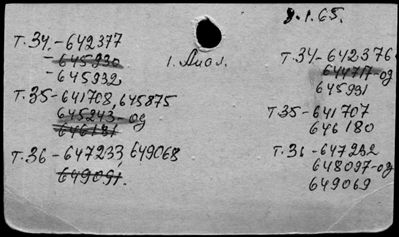 9.1.65.
Т.34.-642377
-645930
-645932
1. Анал.
Т.35-641708,645875
645243-од
646181
Т.36-647233,649068
649091.
Т.34-642376
644717-од
645931
Т35-641707
646180
Т.36-647232
648097-од
649069